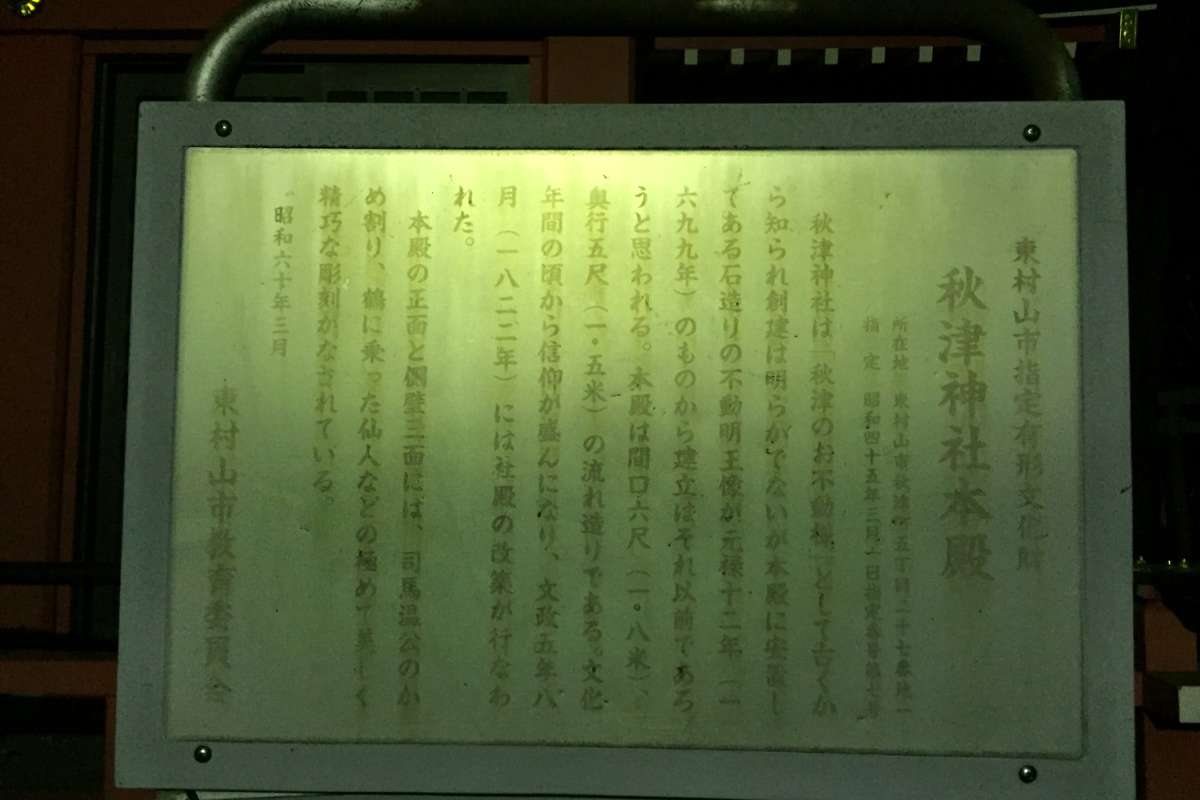 東村山市指定有形文化財
秋津神社本殿
所在地 東村山市秋津町五丁目二十七番地一
指 定 昭和四十五年三月一日指定番号第七号
秋津神社は「秋津のお不動様」として古くか
ら知られ創建は明らかでないが本殿に安置し
てある石造りの不動明王像が元禄十二年(一
六九九年)のものから建立はそれ以前であろ
うと思われる。本殿は間口六尺(一・八米)、
奥行五尺(一・五米)の流れ造りである。文化
年間の頃から信仰が盛んになり、文政五年八
月(一八二二年)には社殿の改築が行なわ
れた。
本殿の正面と側壁三面には、司馬温公のか
め割り、鶴に乗った仙人などの極めて美しく
精巧な彫刻がなされている。
昭和六十年三月
東村山市教育委員会